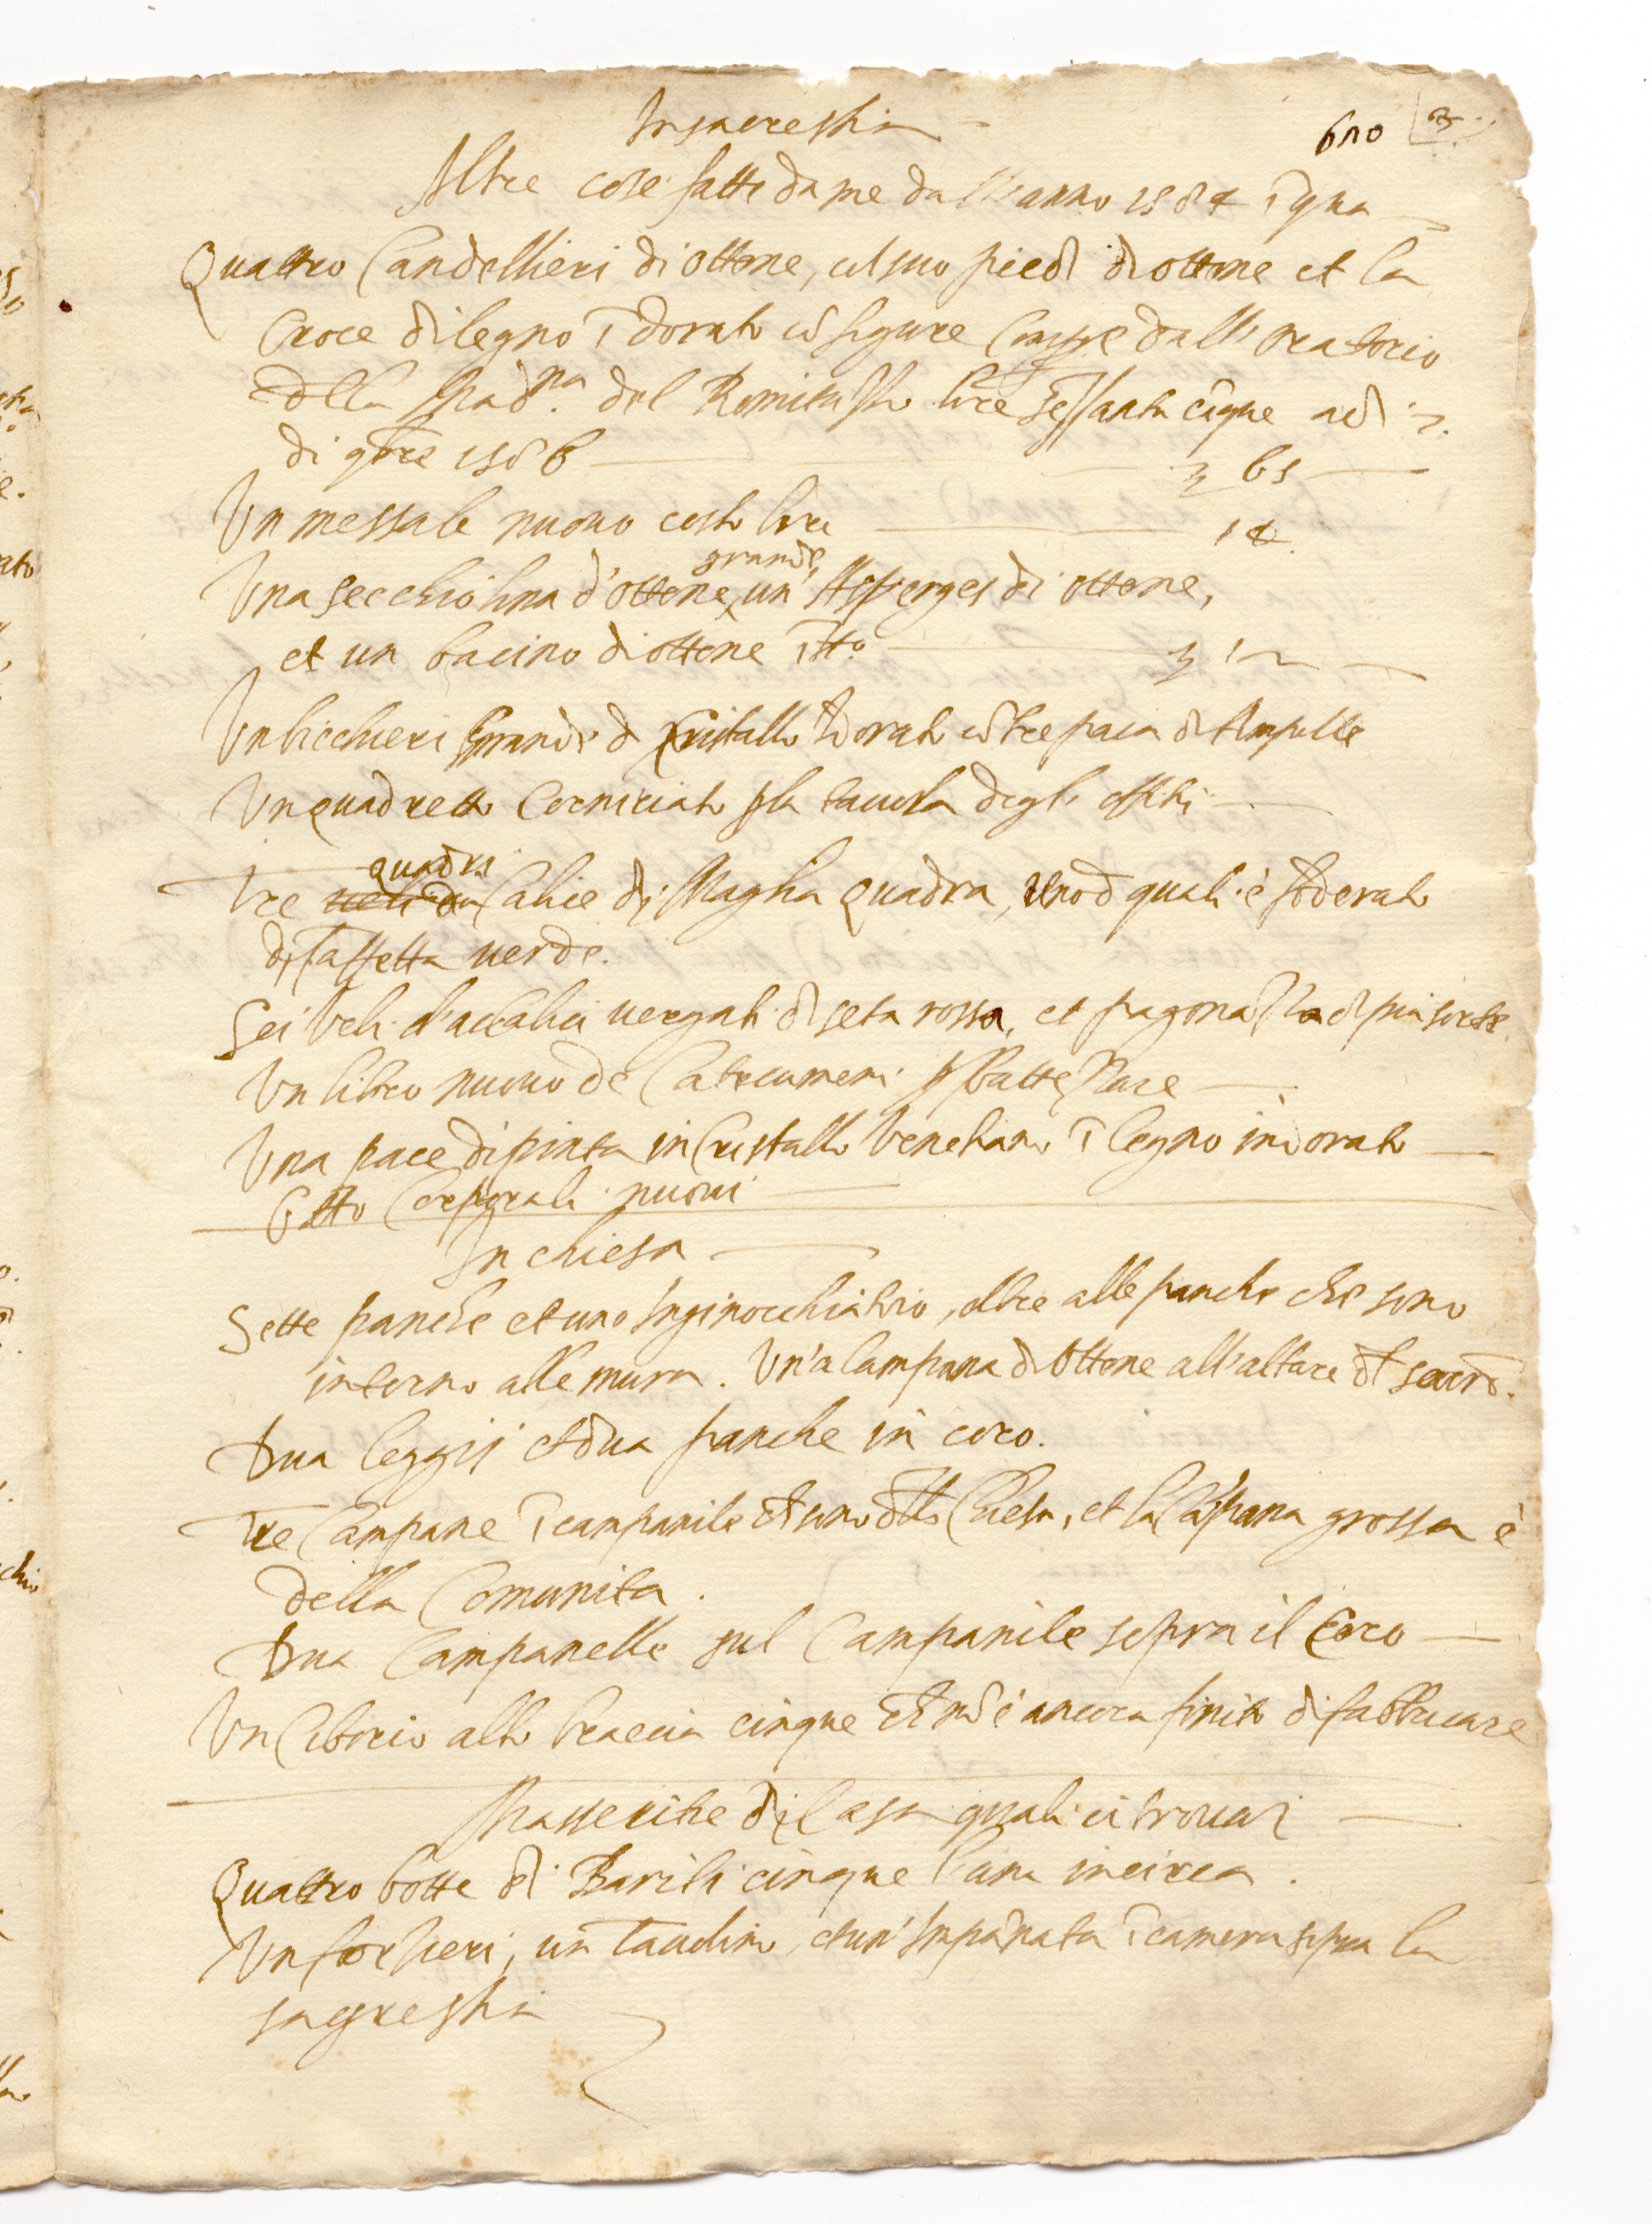 In sacrestia
610
Altre cose fatte da me dall'anno 1584 ī qua
Quattro Candellieri di ottone, col suo piedi di ottone et la
Croce di legno ī dorato cō figure dall' oratorio
della Mad.na del Romituzzo lire sessanta cīque adi 2.
di 9bre 1586 65
Un messale nuovo costo lire 14
grande
Una secchiolina d'ottone, un' Asperges di ottone,
et un bacino di ottone ī tto. 12
Un bicchieri grande di Cristallo īdorato cō tre paia di Ampolle
Un quadretto Corniciato p la tavola degli offitii
quadri
Tre veli da Calice di Maglia quadra, uno d quali è foderato
di Taffetta verde.
Sei veli da calici vergati di seta rossa, et pagonazza di piu sorte.
Un libro nuovo de Catecumeni p battezzare
Una pace dipinta in Cristallo Venetiano ī legno indorato
Otto Corporali nuovi
In chiesa
Sette panche et uno Inginocchiatoio, oltre alle panche che sono
intorno alle mura. Un'a lampana di Ottone all'altare del
Dua leggii et dua panche in coro.
Tre Campane ī campanile et sono Chiesa, et la Cāpana grossa è
della Comunita.
Dua Campanelle sul Campanile sopra il Coro
Un Ciborio alto braccia cinque et nō è ancora finito di fabbricare
Masseritie di Casa quali ci trovai
Quattro botte di Barili cinque l'una incirca.
Un forzieri, un Tavolino, et un' Impānata ī camera sopra la
sagrestia